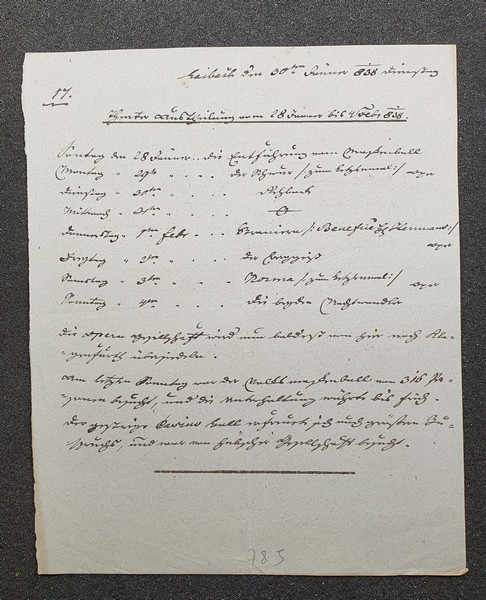 Laibach den 30ten Jänner 838 Dienstag
17.
Theater Austheilung vom 28 Jänner bis 4 Febr 838.
Sontag den 28 Jänner .. die Entführung vom Maskenball
Montag " 29te " . . der Schwur /: zum letztenmal :/ oper
Dienstag " 30ten " . . .
Mittwoch " 31ten " . . .
Donnerstag " 1ten Febr . . Straniera /: Benefice H Hermann :/ oper
Freytag " 2ten " . . der
Samstag " 3ten " . . Norma /: zum letztenmal :/ oper
Sonntag " 4ten " . . die beyden Nachtwandler
Die Opern Gesellschaft wird nun baldest von hier nach Kla-
genfurth übersiedeln.
Am letzten Sonntag war der Maskenball von 316 Per-
sonen besucht, und die Unterhaltung währte bis früh.
Der gestrige Casino ball erfreute sich auch größten Zu-
spruchs, und war von hübscher Gesellschaft besucht.
785